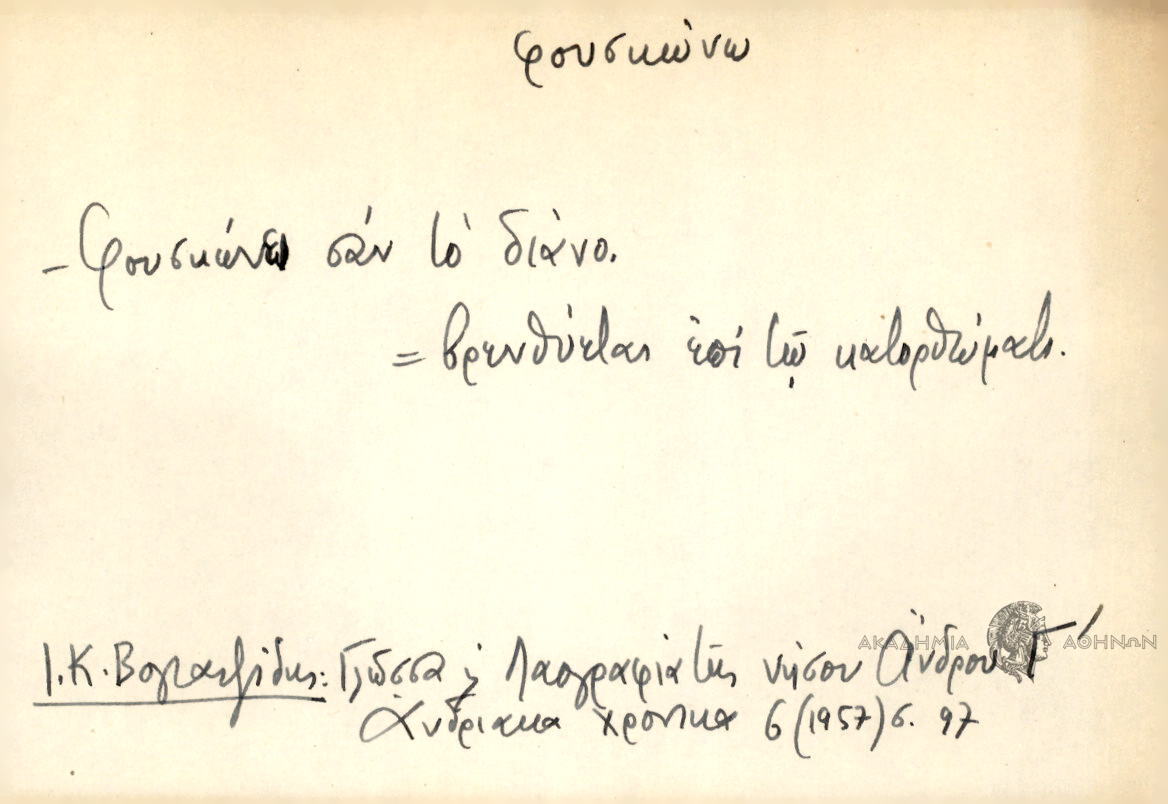 φουσκώνω
- Φουσκώνω σάν τό διάνο.
= βρενθύεται ἐπί τῷ κατορθώματι.
Ι. Κ. Βογιατζίδης: Γλῶσσα ϗ Λαογραφία τῆς νήσου Ἄνδρου Γ΄
Ἀνδριακα χρονικα 6 (1957) σ. 97
ΑΚΑΔΗΜΙΑ ΑΘΗΝΩΝ